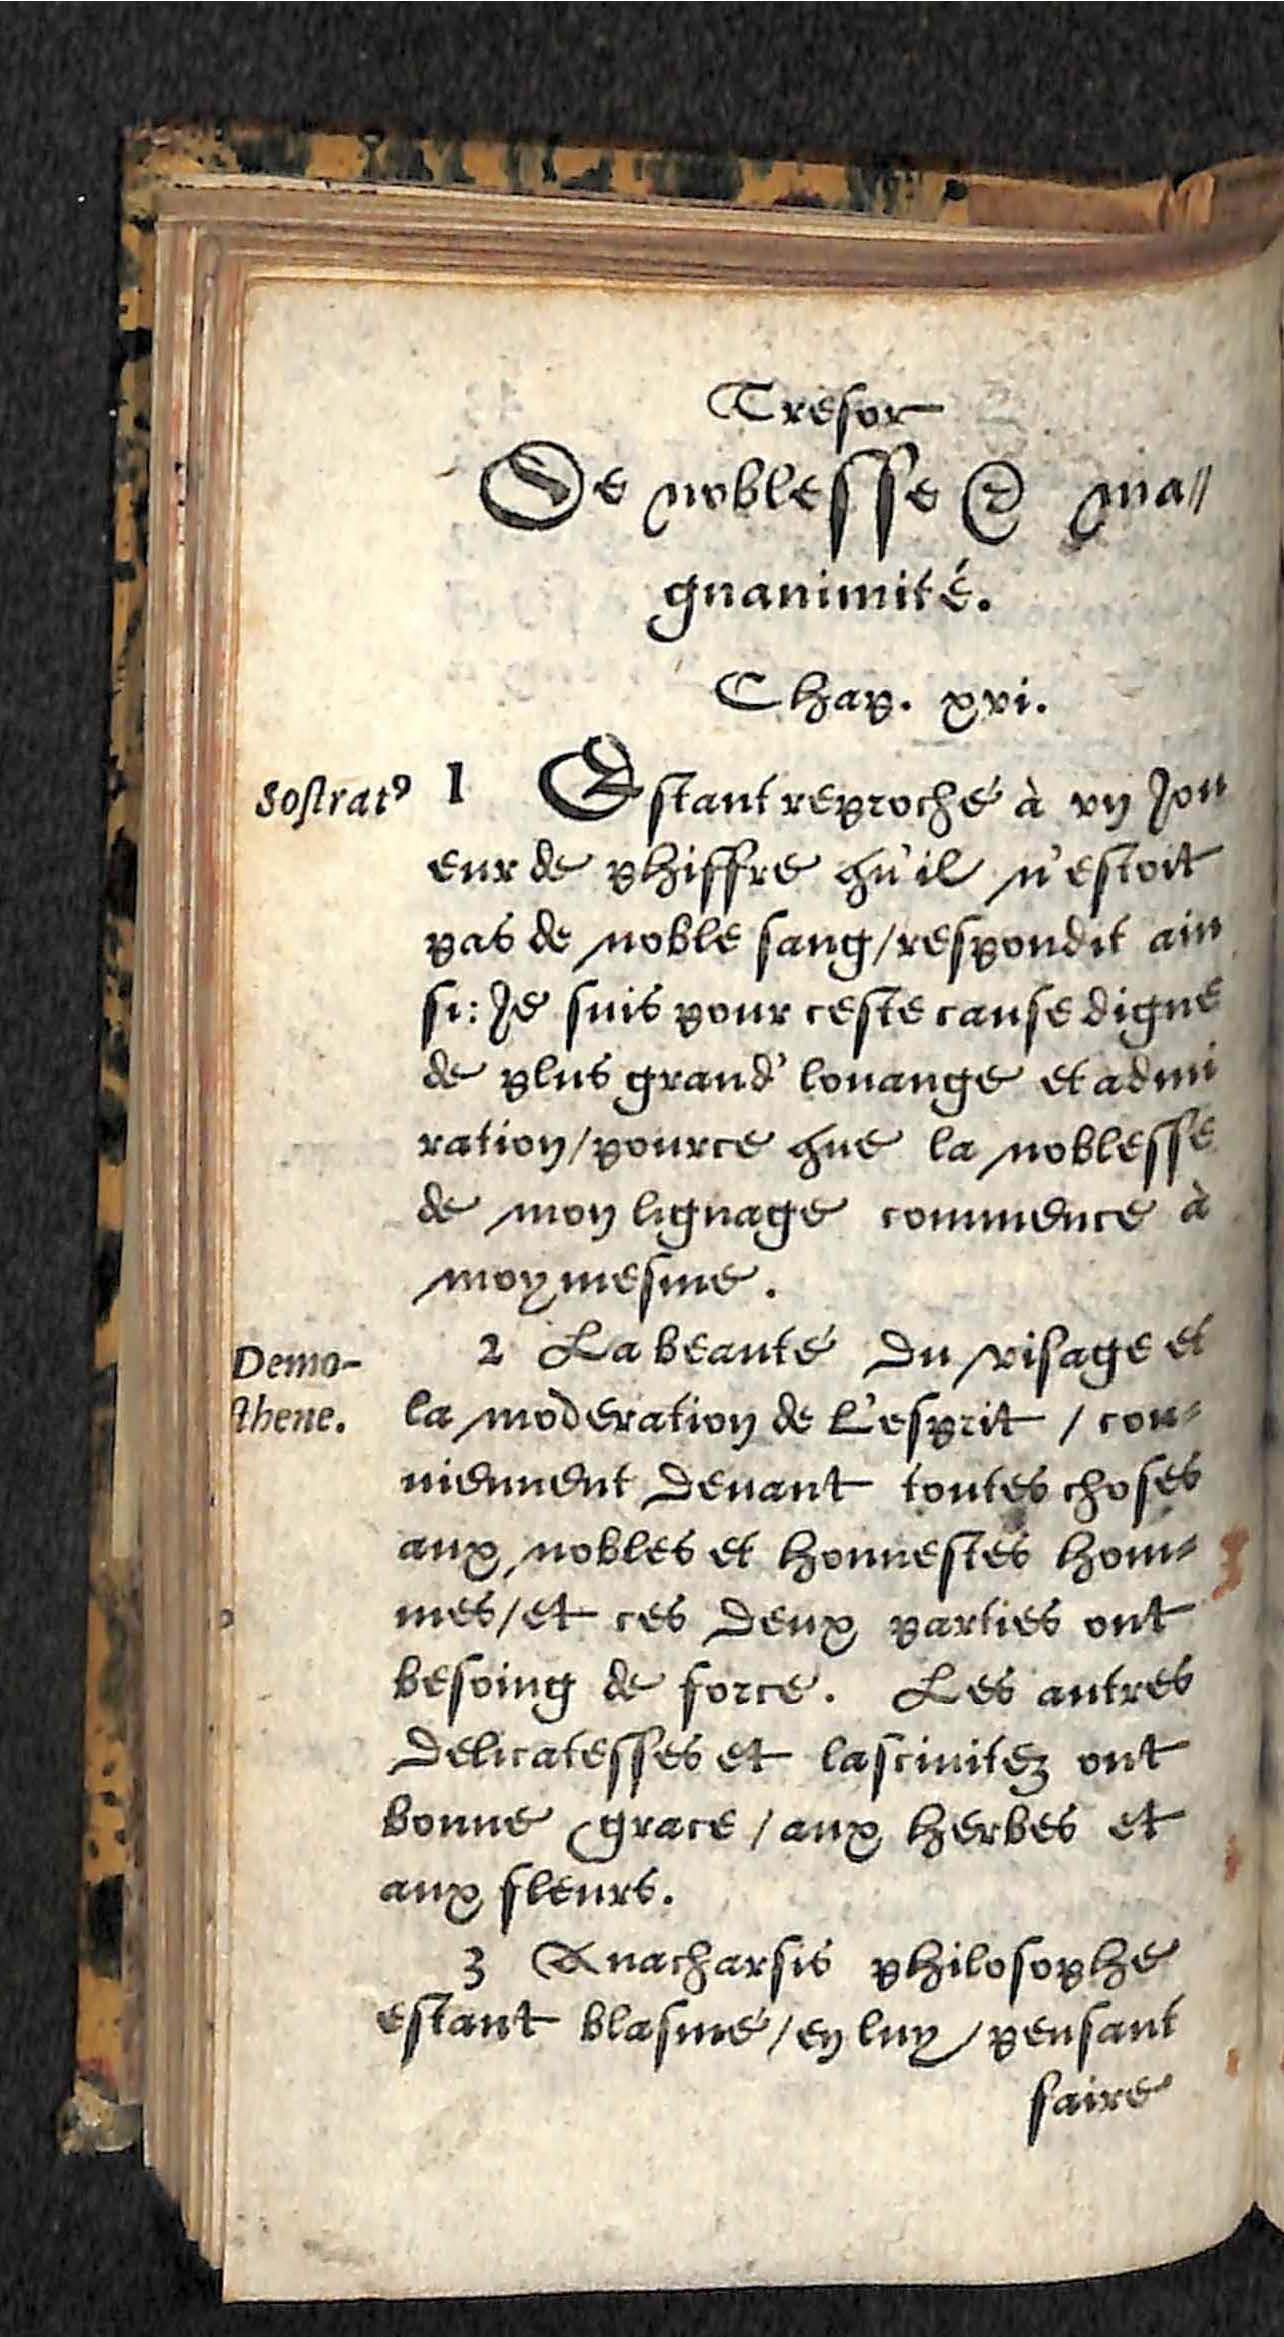 Tresor
De noblesse & ma=
gnanimité.
Chap. xvi.
Sostratꝰ 1 Estant reproché à vn Jou
eur de phiffre qu'il n'estoit
pas de noble sang/respondit ain
si: Je suis pour ceste cause digne
de plus grand' louange et admi
ration/pource que la noblesse
de mon lignage commence à
moymesme.
2 La beauté du visage et
Demo-
sthene.
la moderation de l'esprit / con=
uiennent deuant toutes choses
aux nobles et honnestes hom=
mes/et ces deux parties ont
besoing de force. Les autres
delicatesses et lasciuitez ont
bonne grace/aux herbes et
aux fleurs.
3 Anacharsis philosophe
estant blasmé/en luy pensant
faire